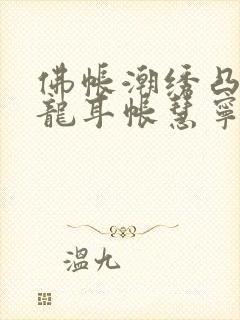 佛帐潮绣凸
龍耳帐慧寧
溫九